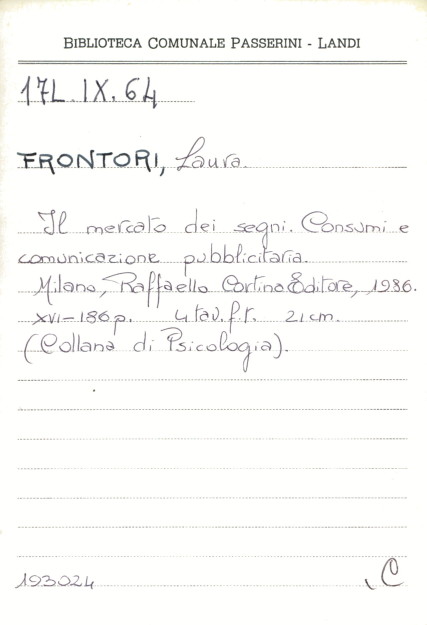 BIBLIOTECA COMUNALE PASSERINI - LANDI
17L.IX.64
FRONTORI, Laura.
Il mercato dei segni. Consumi e
comunicazione pubblicitaria.
Milano, Raffaello Cortina Editore, 1986.
XVI-186p. 4 tav. f.t. 21 cm.
(Collana di Psicologia).
193024
C